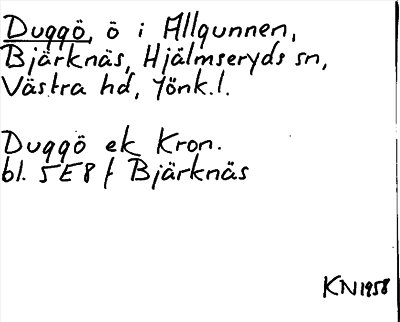 Duggö, ö i Allgunnen,
Bjärknäs, Hjälmseryds sn,
Västra hd, Jönk.l.
Duggö ek Kron.
bl. 5E8f Bjärknäs
KN1958